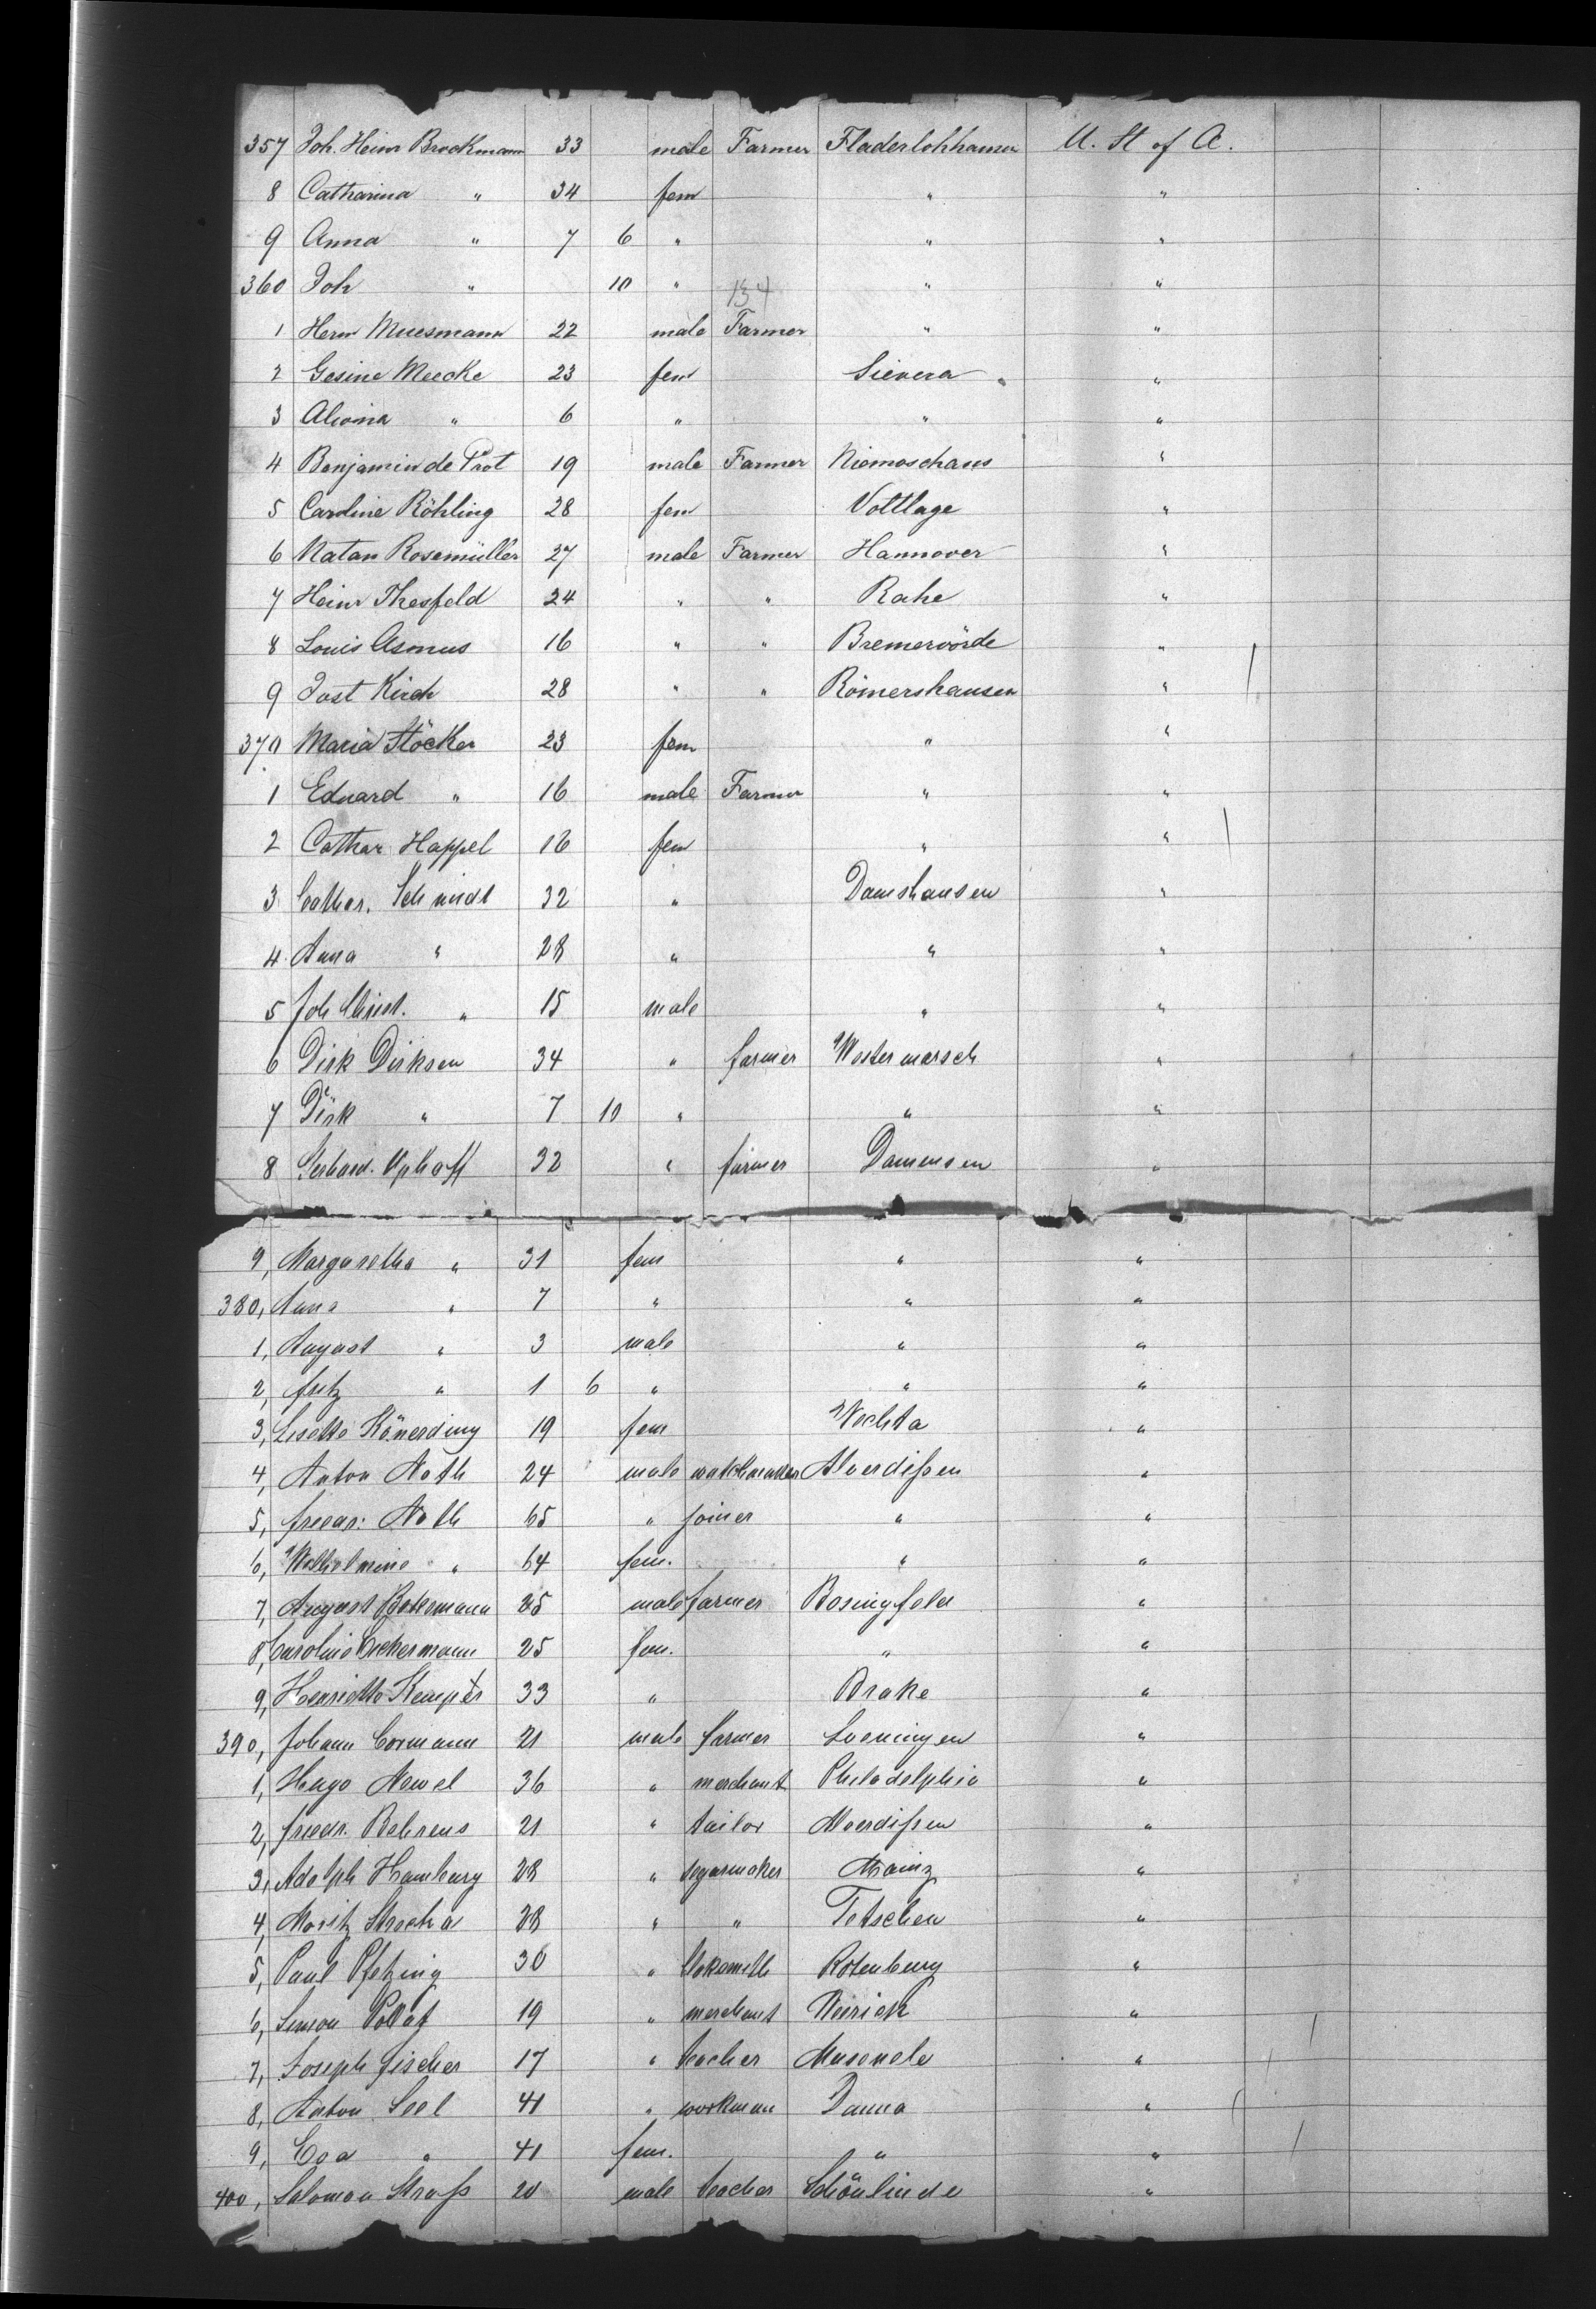 357 Joh. Heinr Brockmann 33 male Farmer Fladerlohhausen U. St of A.
8 Catharina " 34 fem " "
9 Anna " 7 6 " " "
360 Joh " 10 " " "
134
1 Herm Muesmann 22 male Farmer " "
2 Gesine Meecke 23 fem Sievera "
3 Alwina " 6 " " "
4 Benjamin de Pot 19 male Farmer Niemoschaus "
5 Caroline Röhling 28 fem Voltlage "
6 Natan Rosemüller 27 male Farmer Hannover "
7 Heinr Thesfeld 24 " " Rahe "
8 Louis Asmus 16 " " Bremervörde "
9 Jost Kirch 28 " " Römershausen "
370 Maria Stöcker 23 fem " "
1 Eduard " 16 male Farmer " "
2 Cathar Happel 16 fem " "
3 Cathar. Schmidt 32 " Damshausen "
4 Anna " 28 " " "
5 Joh Christ. " 15 male " "
6 Dirk Dirksen 34 " farmer Westermarsch "
7 Dirk " 7 10 " " "
8 Gerhard. Uphoff 32 " farmer Dammsen "
9, Margaretha " 31 fem " "
380, Anna " 7 " " "
1, August " 3 male " "
2, Fritz " 1 6 " " "
3, Lisette Könerding 19 fem Vechta "
4, Anton Noth 24 male watchmaker Alverdißen "
5, Friedr: Noth 65 " joiner " "
6, Wilhelmine " 64 fem. " "
7, August Bokemann 25 male farmer Bosingfeld "
8, Caroline Ackermann 25 fem. " "
9, Henriette Kemper 33 " Brake "
390, Johann Cormann 21 male farmer Loeningen "
1, Hugo Newel 36 " merchant Philadelphia "
2, Friedr. Behrens 21 " tailor Alverdißen "
3, Adolph Hamburg 28 " segarmaker Mainz "
4, Moritz Strocha 28 " " Tetschen "
5, Paul Pfetzing 30 " loksmith Rotenburg "
6, Simon 19 " merchant "
7, Joseph Fischer 17 " teacher "
8, Anton Seel 41 " workman Danna "
9, Eva " 41 fem. " "
400, Salomon Strauß 20 male teacher Schönlinde "